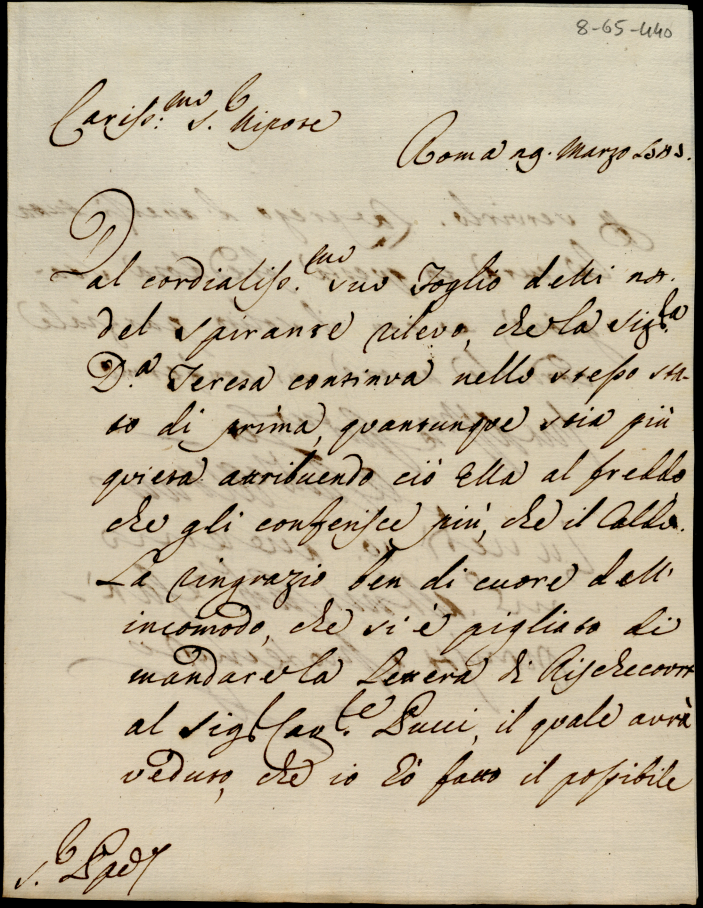 8-65-440
Cariss.mo S.r Nipote
Roma 29. Marzo
Dal cordialiss.mo suo Foglio delli
del spirante rilevo, che la Sig.ra
D.a Teresa continva nello stesso sta-
to di prima, quantunque stia più
quieta attribuendo ciò Ella al freddo
che gli conferisce più, che il Caldo.
La ringrazio ben di cuore dell'
incomodo, che si è pigliato di
mandare la Lettera di
al Sig.r Cav.re Pucci, il quale avrà
veduto, che io hò fatto il possibile
S.r